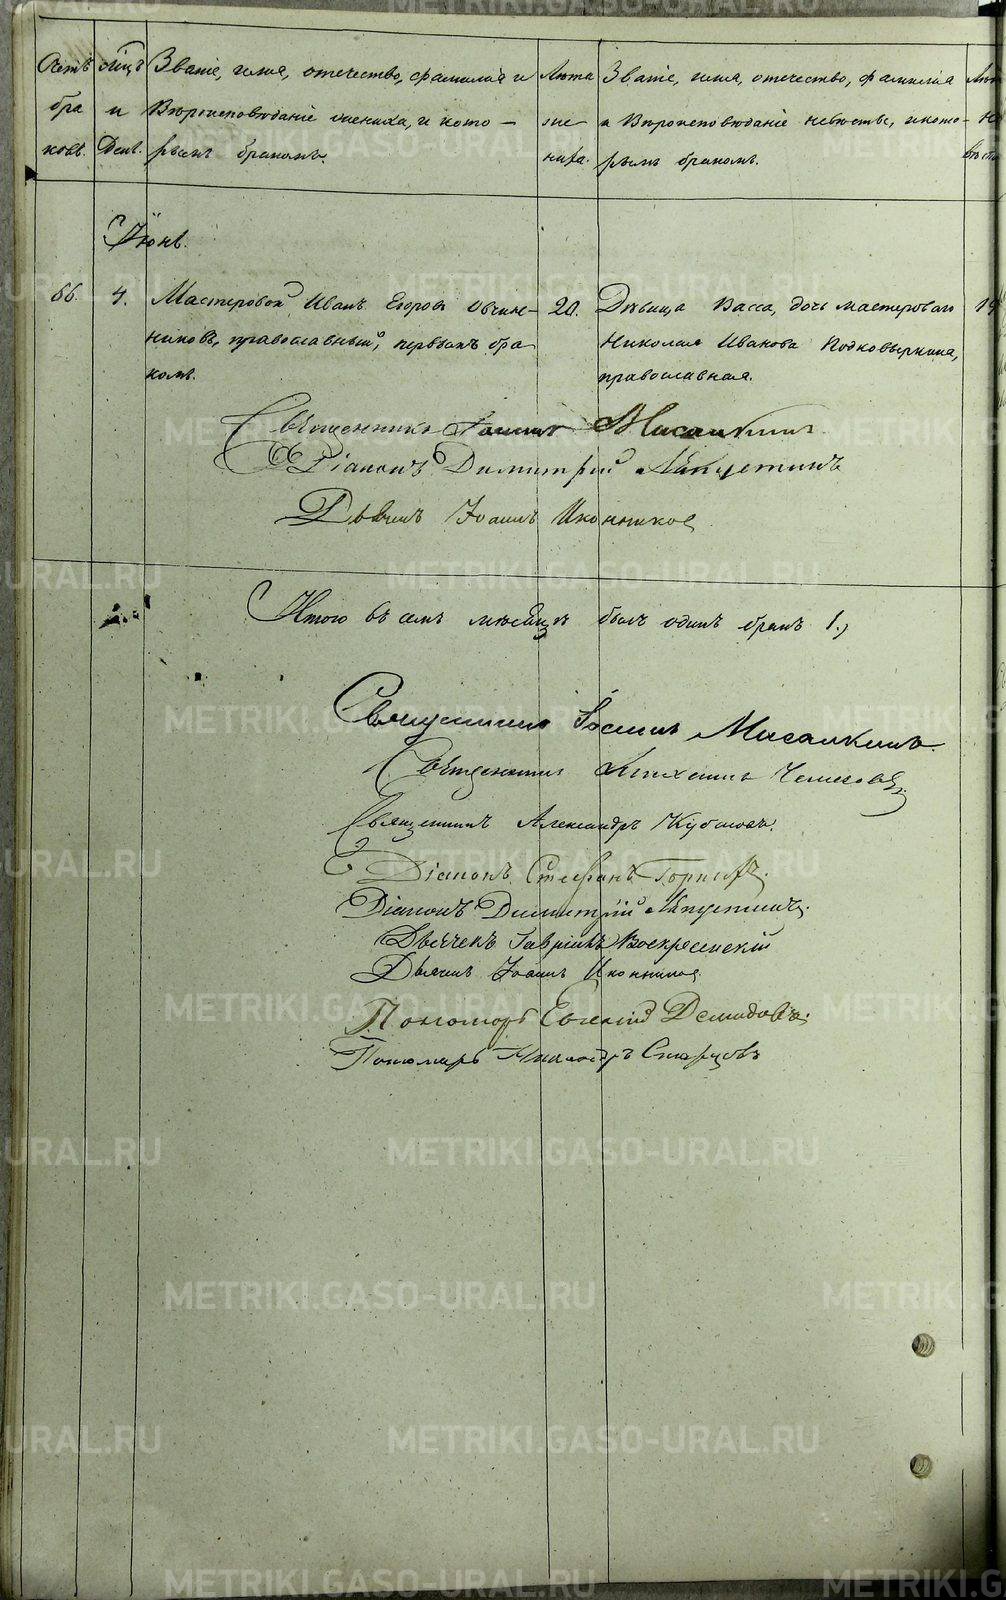 Счетъ бра ковъ.
Мѣсяцъ и День.
Званіе, имя, отечество, фамилія и
Вѣроисповѣданіе жениха, и кото-
рымъ бракомъ.
Лѣта же ниха.
Званіе, имя, отечество, фамилія
и Вѣроисповѣданіе невѣсты, и кото-
рымъ бракомъ.
Іюнь.
66. 4. Мастеровой Иванъ Егоровъ Овчин- 20. Дѣвица Васса, дочь мастероваго 19
никовъ, православный, первымъ бра Николая Иванова Подковыркина,
комъ. православная.
Священникъ Іоаннъ Мисалкинъ
Діаконъ Димитрій Ляпустинъ
Дьячекъ Іоаннъ Иконниковъ
Итого въ семъ мѣсяцѣ былъ одинъ бракъ 1.)
Священникъ Іоаннъ Мисалкинъ.
Священникъ
Священникъ Александръ
Діаконъ Стефанъ
Діаконъ Димитрій Ляпустинъ.
Дьячекъ Гавріилъ Воскресенскій
Дьячекъ Іоаннъ Иконниковъ
Пономарь Евгеній Демидовъ.
Пономарь Старцовъ
METRIKI.GASO-URAL.RU